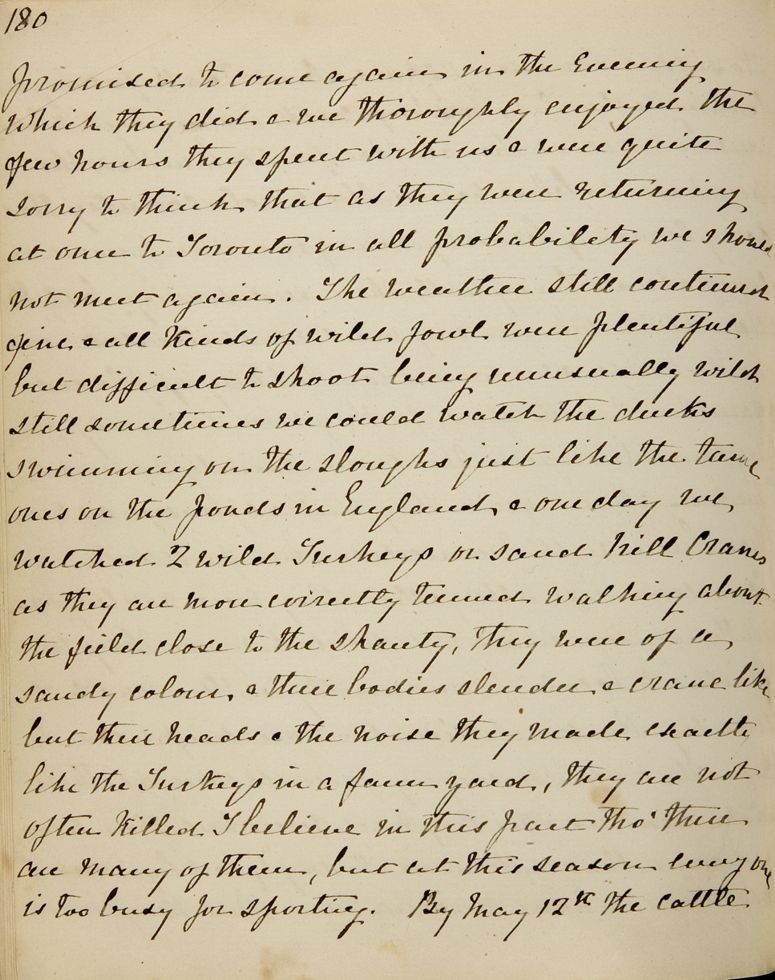 180
promised to come again in the Evening
which they did & we thoroughly enjoyed the
few hours they spent with us & were quite
sorry to think that as they were returning
at once to Toronto in all probability we should
not meet again. The weather still continued
fine & all kinds of wild fowl were plentiful
but difficult to shoot being unusually wild
still sometimes we could watch the ducks
swimming on the sloughs just like the tame
ones on the ponds in England & one day we
watched 2 wild Turkeys or sand hill Cranes
as they are more correctly termed walking about
the field close to the shanty, they were of a
sandy colour, & their bodies slender & crane like
but their heads & the noise they made exactly
like the Turkeys in a farm yard, they are not
often killed I believe in this part tho' there
are many of them, but at this season every one
is too busy for sporting. By May 12th the cattle